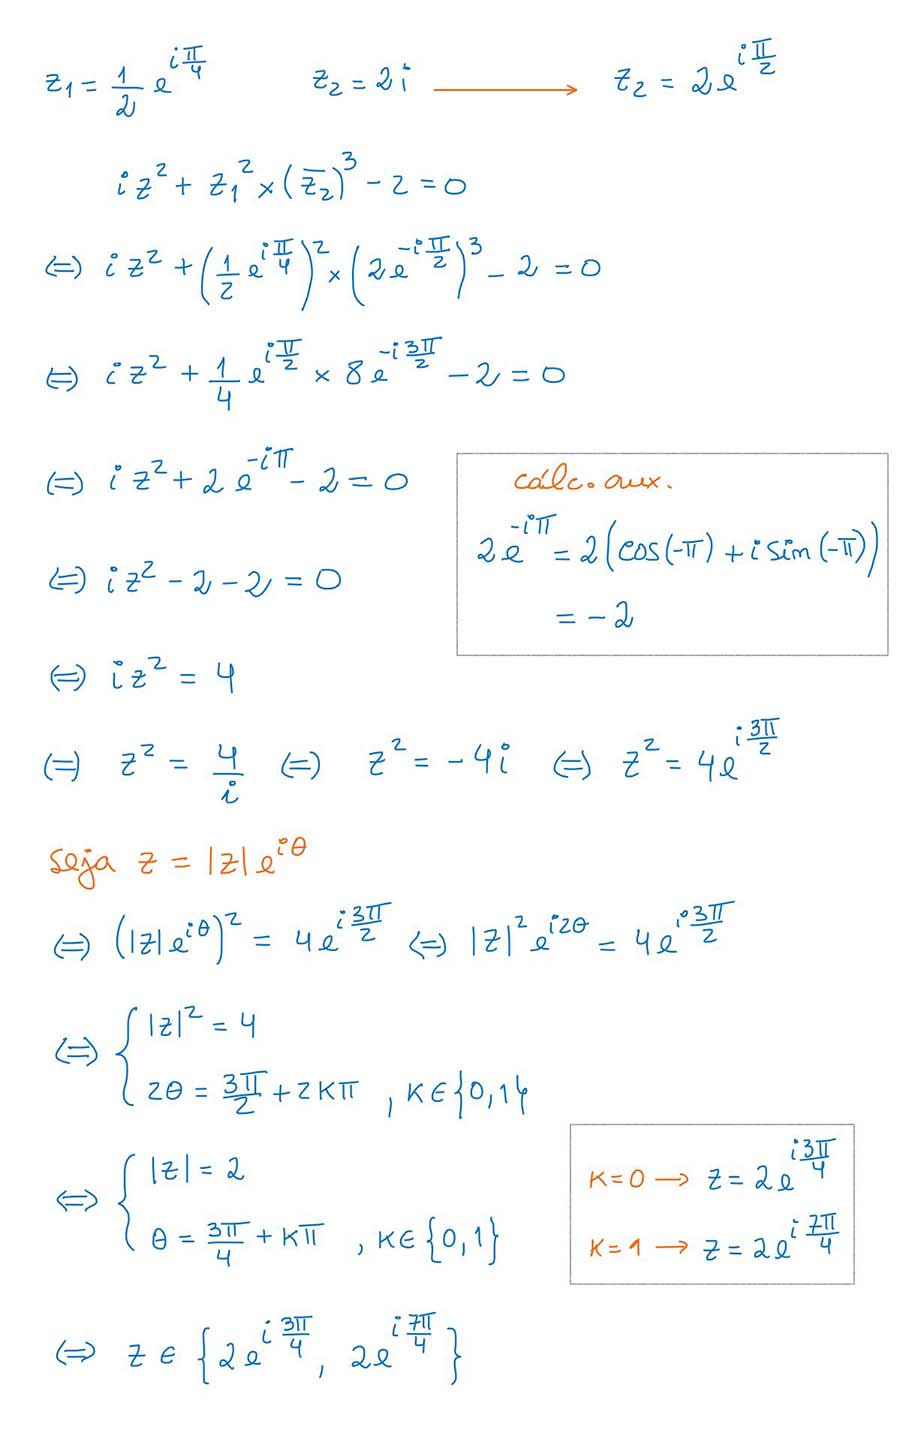 z₁ = 1/2 e^(iπ/4)    z₂ = 2i ⟶ z₂ = 2e^(iπ/2)
iz² + z₁² × (z̅₂)³ − 2 = 0
⇔ iz² + (1/2 e^(iπ/4))² × (2e^(−iπ/2))³ − 2 = 0
⇔ iz² + 1/4 e^(iπ/2) × 8e^(−i3π/2) − 2 = 0
⇔ iz² + 2e^(−iπ) − 2 = 0
cálc. aux.
2e^(−iπ) = 2(cos(−π) + i sin(−π))
= −2
⇔ iz² − 2 − 2 = 0
⇔ iz² = 4
⇔ z² = 4/i ⇔ z² = −4i ⇔ z² = 4e^(i3π/2)
Seja z = |z|e^(iθ)
⇔ (|z|e^(iθ))² = 4e^(i3π/2) ⇔ |z|² e^(i2θ) = 4e^(i3π/2)
⇔ { |z|² = 4
2θ = 3π/2 + 2Kπ , K ∈ {0,1}
⇔ { |z| = 2
θ = 3π/4 + Kπ , K ∈ {0,1}
K=0 → z = 2e^(i3π/4)
K=1 → z = 2e^(i7π/4)
⇔ z ∈ {2e^(i3π/4), 2e^(i7π/4)}